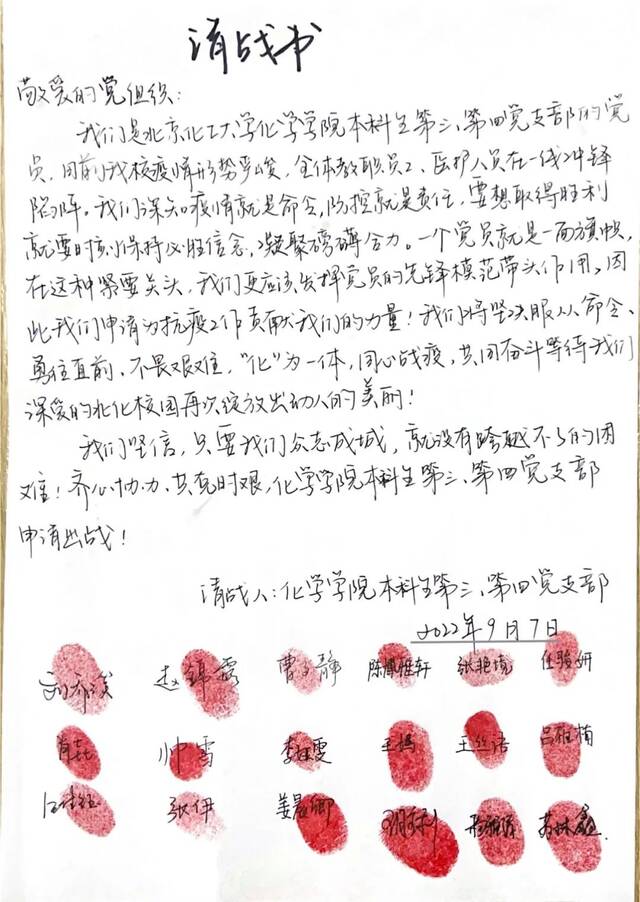 请战书
敬爱的党组织:
我们是北京化工大学化学学院本科生第三、第四党支部的党
员,目前我校疫情形势严峻,全体教职员工、医护人员在一线冲锋
陷阵。我们深知疫情就是命令,防控就是责任,要想取得胜利
就要时刻保持必胜信念,凝聚磅礴合力。一个党员就是一面旗帜,
在这种紧要关头,我们更应该发挥党员的先锋模范带头作用,因
此我们申请为抗疫工作贡献我们的力量!我们将坚决服从命令、
勇往直前、不畏艰难,“化”为一体,同心战疫,共同奋斗等待我们
深爱的北化校园再次绽放出动人的美丽!
我们坚信,只要我们众志成城,就没有跨越不了的困
难!齐心协力、共克时艰,化学学院本科生第三、第四党支部
申请出战!
请战人:化学学院本科生第三、第四党支部
2022年9月7日
赵锦露 曹文静 张艳琦 任骏妍
肖垚 帅雪 王嫣 王丝语
张伊 姜晨卿 苏林鑫